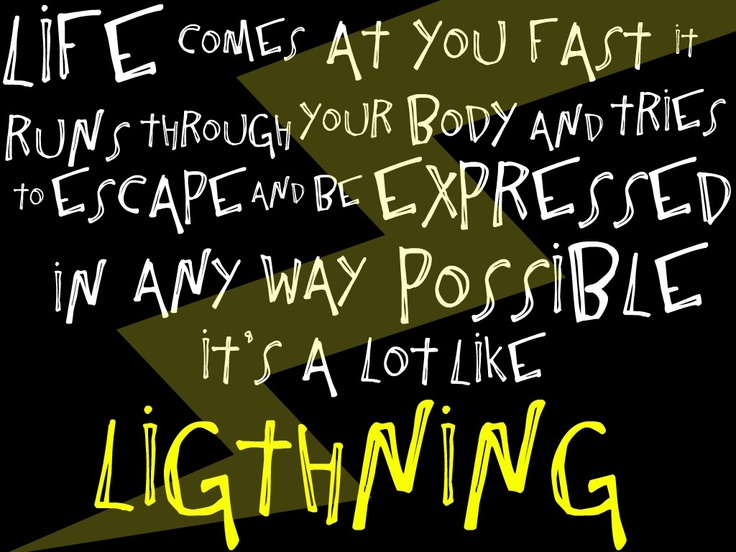 LiFE COMES AT YOU FAST iT
RUNS THROUGH YOUR BODY AND TRiES
TO ESCAPE AND BE EXPRESSED
iN ANY WAY POSSiBLE
iT'S A LOT LiKE
LiGTHNiNG